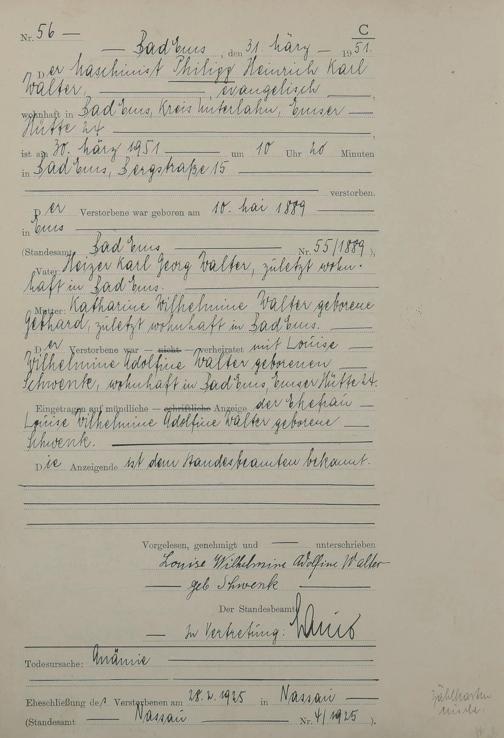 Nr. 56 —
C
— Bad Ems, den 31. März — 1951.
Der Maschinist Philipp Heinrich Karl
Walter, — evangelisch —,
wohnhaft in Bad Ems, Kreis Unterlahn, Emser —
Hütte 24 —,
ist am 30. März 1951 — um 10 Uhr 20 Minuten
in Bad Ems, Bergstraße 15 —
— verstorben.
Der Verstorbene war geboren am 10. Mai 1889 —
in Ems —
(Standesamt Bad Ems — Nr. 55/1889),
Vater: Heizer Karl Georg Walter, zuletzt wohn-
haft in Bad Ems. —
Mutter: Katharine Wilhelmine Walter geborene
Gebhard, zuletzt wohnhaft in Bad Ems. —
Der Verstorbene war — nicht — verheiratet mit Louise —
Wilhelmine Adolfine Walter geborenen —
Schwenk, wohnhaft in Bad Ems, Emser Hütte 24.
Eingetragen auf mündliche — schriftliche Anzeige der Ehefrau —
Louise Wilhelmine Adolfine Walter geborene —
Schwenk. —
Die Anzeigende ist dem Standesbeamten bekannt.
Vorgelesen, genehmigt und — unterschrieben
Louise Wilhelmine Adolfine Walter
— geb Schwenk —
Der Standesbeamte
— In Vertretung:
Todesursache: Anämie —
Eheschließung des Verstorbenen am 28.2.1925 in Nassau —
(Standesamt — Nassau — Nr. 4/1925).
Zählkarten